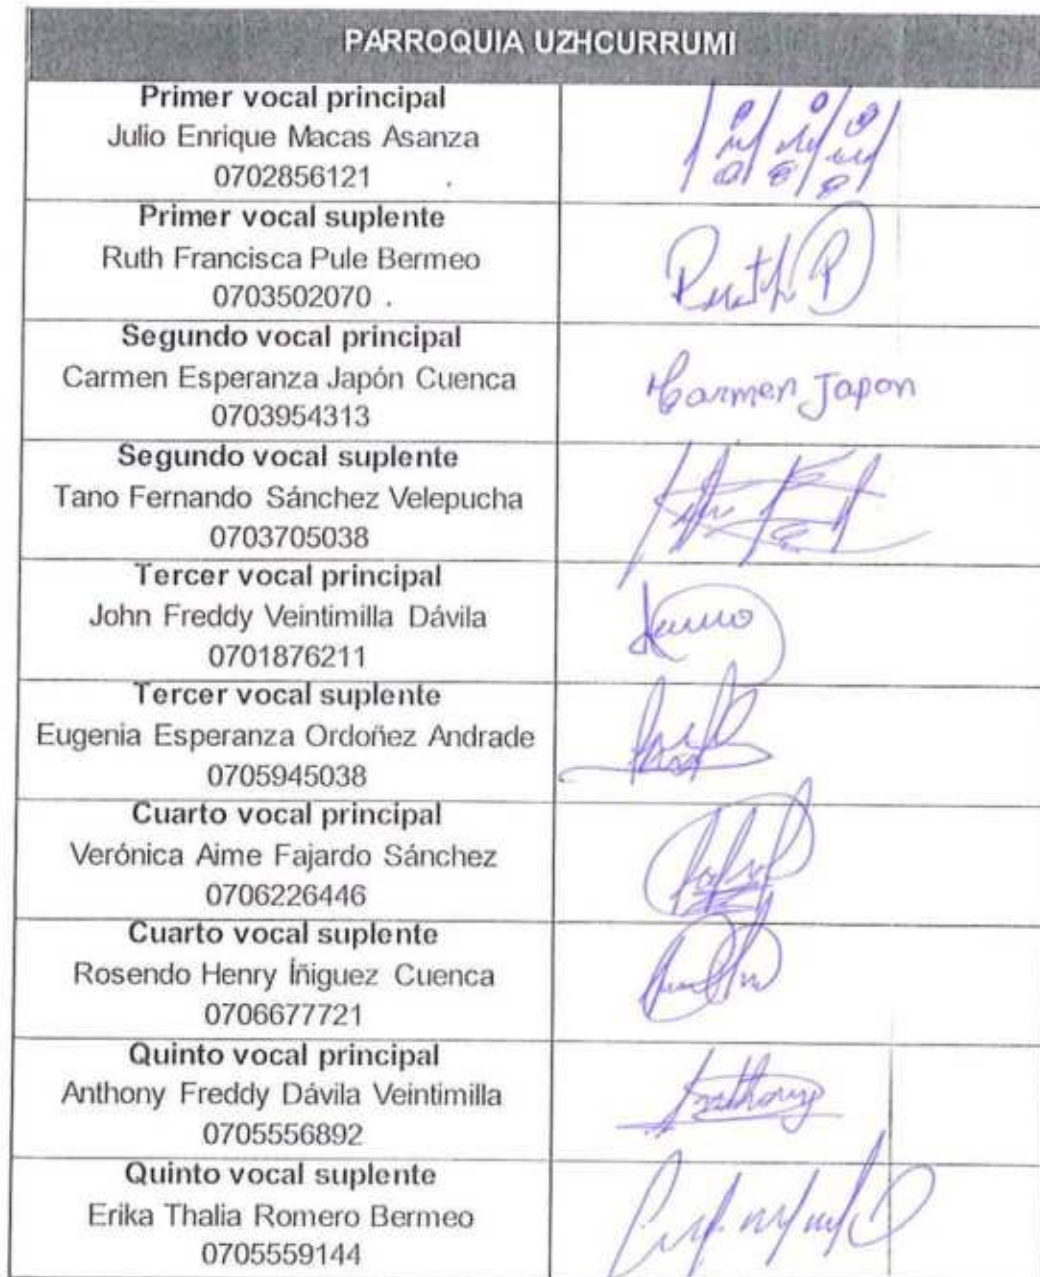 PARROQUIA UZHCURRUMI
Primer vocal principal
Julio Enrique Macas Asanza
0702856121
Primer vocal suplente
Ruth Francisca Pule Bermeo
0703502070
Ruth P
Segundo vocal principal
Carmen Esperanza Japón Cuenca
0703954313
Carmen Japon
Segundo vocal suplente
Tano Fernando Sánchez Velepucha
0703705038
Tercer vocal principal
John Freddy Veintimilla Dávila
0701876211
Tercer vocal suplente
Eugenia Esperanza Ordoñez Andrade
0705945038
Cuarto vocal principal
Verónica Aime Fajardo Sánchez
0706226446
Cuarto vocal suplente
Rosendo Henry Íñiguez Cuenca
0706677721
Quinto vocal principal
Anthony Freddy Dávila Veintimilla
0705556892
Anthony
Quinto vocal suplente
Erika Thalia Romero Bermeo
0705559144